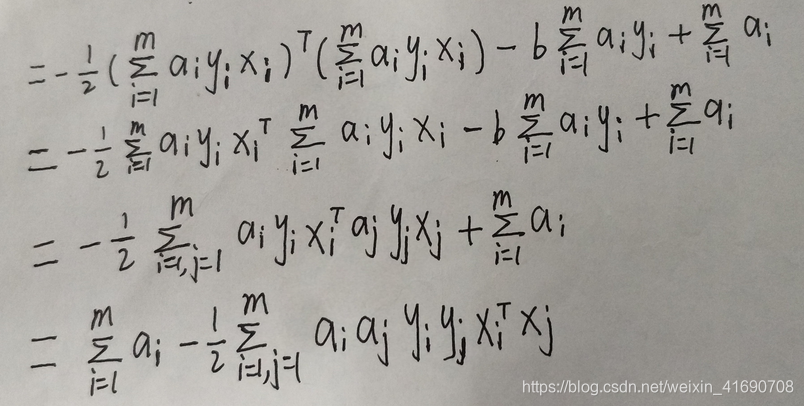 = -1/2 (∑_{i=1}^{m} a_i y_i x_i)^T (∑_{i=1}^{m} a_i y_i x_i) - b ∑_{i=1}^{m} a_i y_i + ∑_{i=1}^{m} a_i
= -1/2 ∑_{i=1}^{m} a_i y_i x_i^T ∑_{i=1}^{m} a_i y_i x_i - b ∑_{i=1}^{m} a_i y_i + ∑_{i=1}^{m} a_i
= -1/2 ∑_{i=1,j=1}^{m} a_i y_i x_i^T a_j y_j x_j + ∑_{i=1}^{m} a_i
= ∑_{i=1}^{m} a_i - 1/2 ∑_{i=1,j=1}^{m} a_i a_j y_i y_j x_i^T x_j
https://blog.csdn.net/weixin_41690708